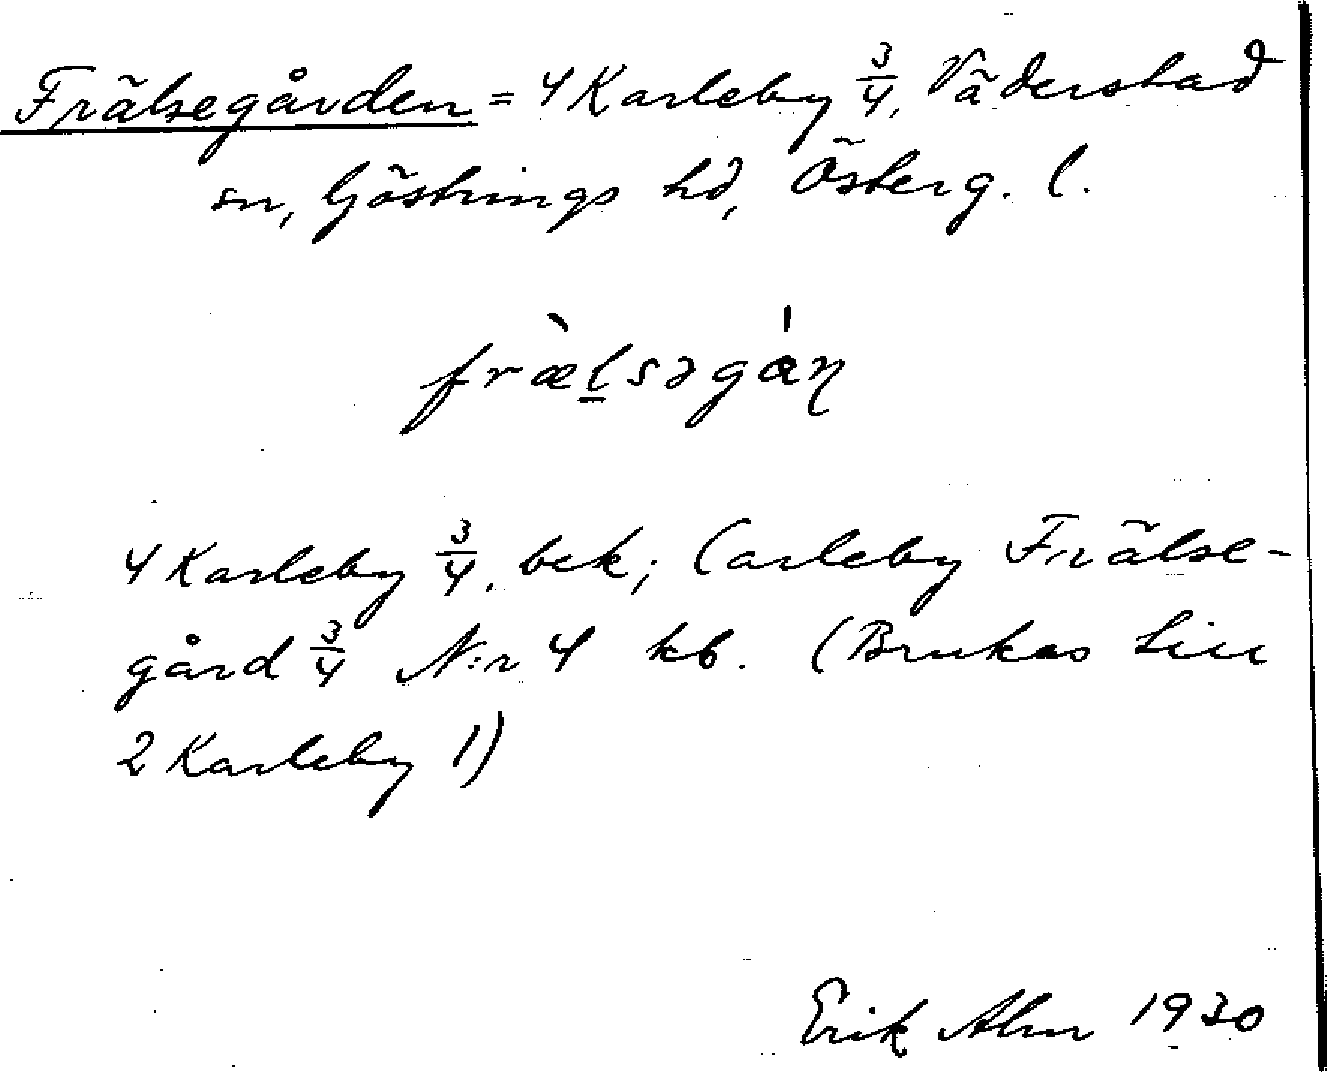 Frälsegården = 4 Karleby 3/4, Väderstad
sn, Göstrings hd, Österg. l.
fræ̀lsəgán
4 Karleby 3/4, bek; Carleby Frälse-
gård 3/4 N:r 4 kb. (Brukas
2 Karleby 1)
Erik Alm 1930